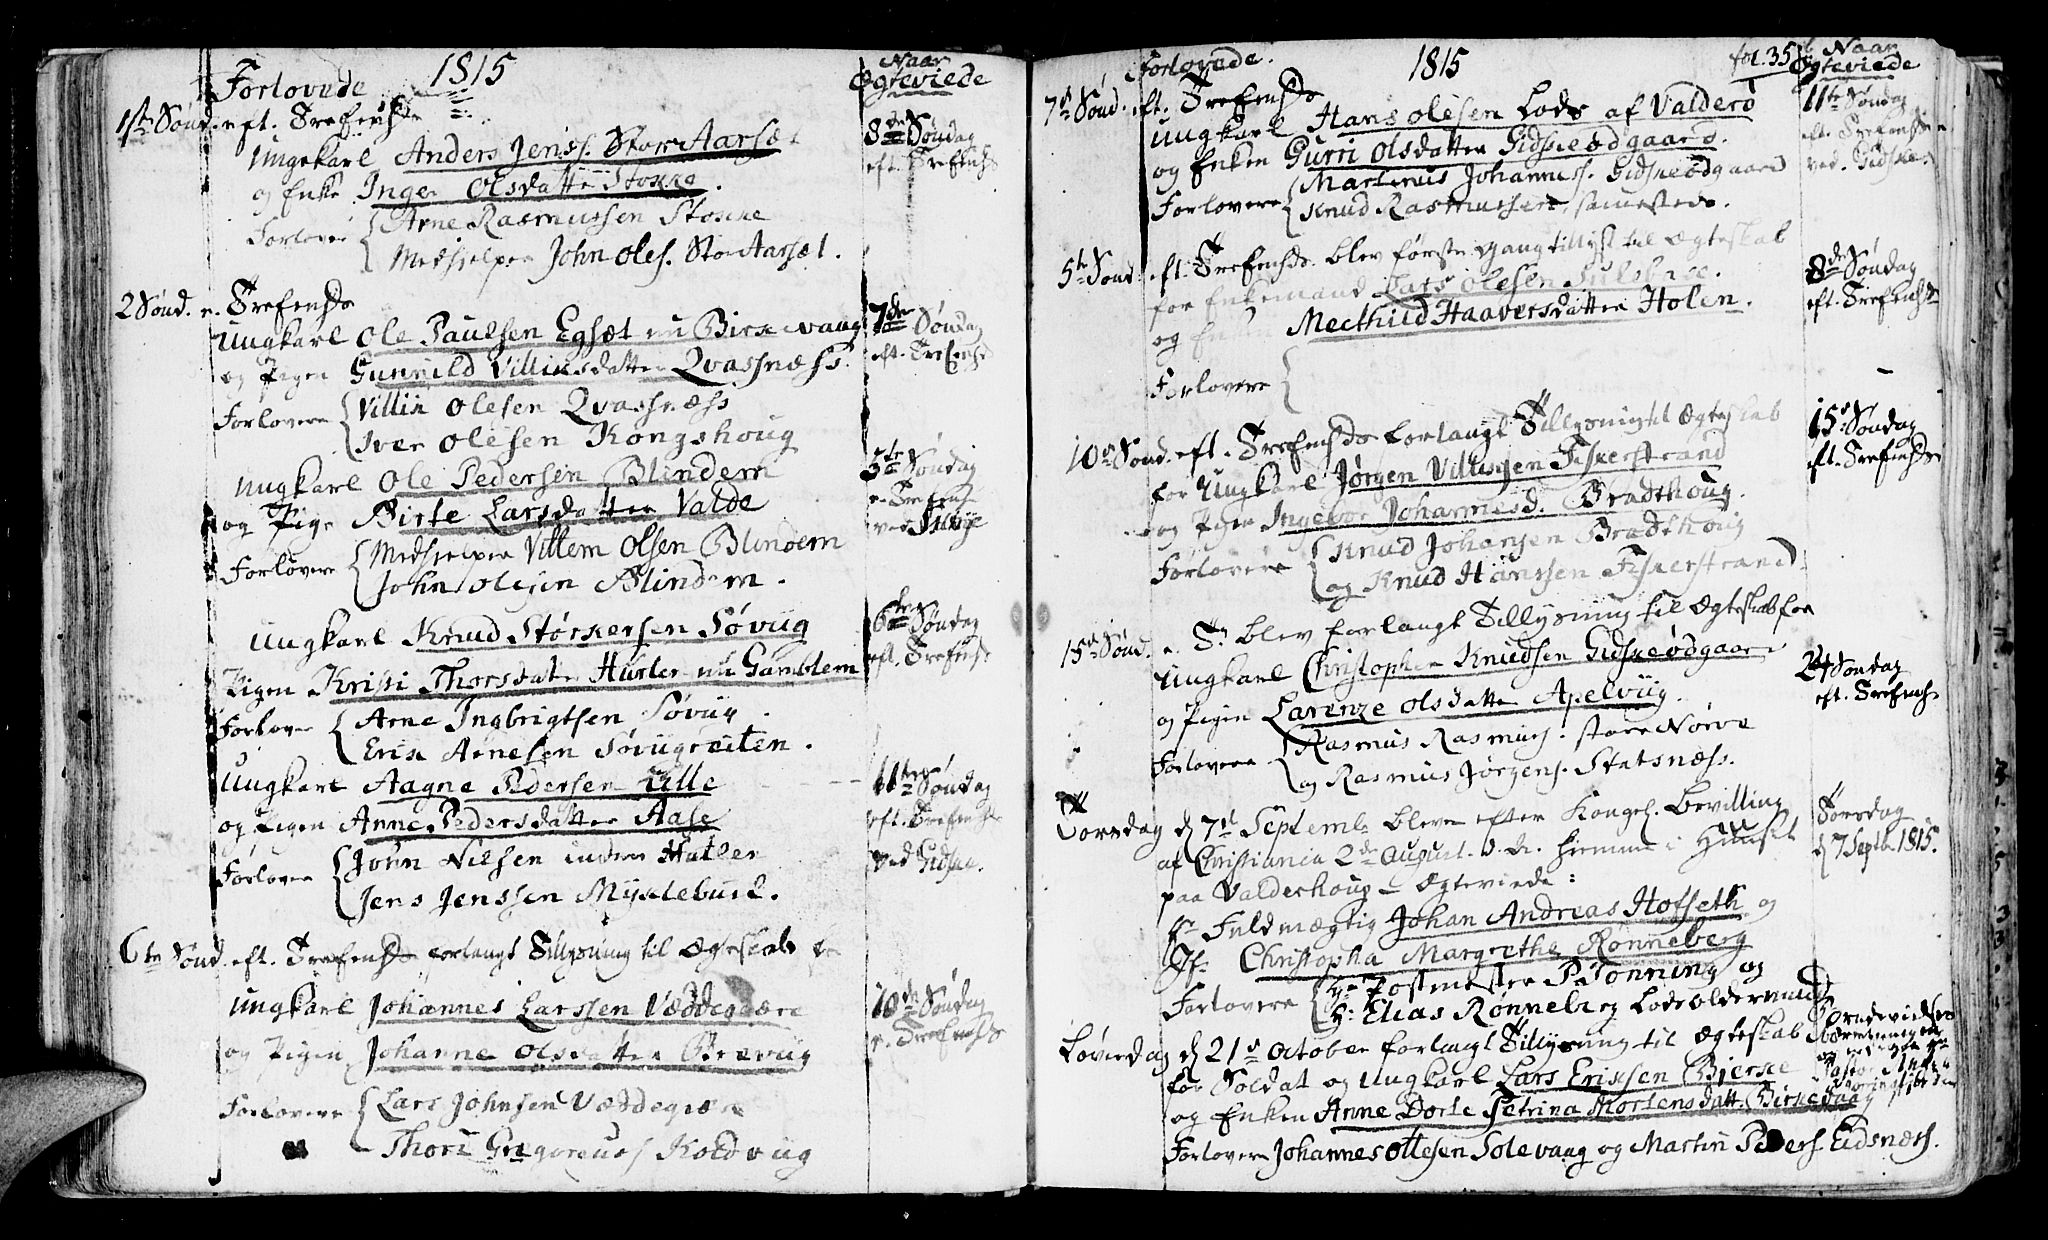 Forlovede 1815
Naar Ægteviede
1ste Sønd. eft. Trefoldh.
Ungekarl Anders Jenss. Stor Aarsæt
og Enke Inger Olsdatter Stokke.
Forlover Arne Rasmussen Stokke
Medhjelper John Oles. Stor Aarsæt.
8de Søndag
eft. Trefh.
2 Sønd. e. Trefh.
Ungkarl Ole Paulsen Egsæt nu Birkevaag
og Pigen Gunnild Villiksdatter Qvasnæss.
Forlovere Villik Olesen Qvasnæss
Iver Olesen Kongshoug
7de Søndag
eft. Trefh.
Ungkarl Ole Pedersen Blindem
og Pige Birte Larsdatter Valde
Forlovere Medhjelper Villem Olsen Blindem
John Olesen Blindem.
5te Søndag
e. Trefh.
ved
Ungkarl Knud Størkersen Søvug
Pigen Kristi Thorsdatter Hurler nu Gamblem
Forlover Arne Ingbrigtsen Søvug
Erik Arnesen Søvugreiten.
6te Søndag
eft. Trefh.
Ungkarl Aagne Pedersen Ulle
og Pigen Anne Pedersdatter Aase
Forlover John Nilsen indre Hatler
Jens Jenssen Myklebust.
11te Søndag
eft. Trefh.
ved Gidske.
6te Sønd. eft. Trefh. forlangt Tillysning til Ægteskab for
Ungkarl Johannes Larssen Veddegjære
og Pigen Johanne Olsdatter Brevug
Forlovere Lars Johnsen Veddegjære
Thori Gregoreus Koldvug
10de Søndag
e. Trefh.
Forlovede. 1815 fol. 35
Naar Ægteviede
7de Sønd. eft. Trefh.
Ungkarl Hans Olesen Lods af Valderø
og Enken Gurri Olsdatter Gidskeødgaard.
Forlovere Martinus Johanness. Gidskeødgaard
Knud Rasmussen, samesteds.
11te Søndag
eft. Trefh.
ved Gidske.
5te Sønd. eft. Trefh. blev første Gang tillyst til Ægteskab
for Enkemand Lars Olesen
og Enke Mecthild Haaversdatter Holen.
Forlovere
8de Søndag
eft. Trefh.
10de Sønd. eft. Trefh. forlangt Tillysning til Ægteskab
for Ungkarl Jørgen Villigsen Fiskerstrand
og Pigen Ingebor Johannesd. Bradthoug.
Forlovere Knud Johansen Bradthoug
og Knud Hanssen Fiskerstrand.
15de Søndag
eft. Trefh.
15de Sønd. e. T. blev forlangt Tillysning til Ægteskab for
Ungkarl Christopher Knudsen Gidskeødgaard
og Pigen Larenze Olsdatter Apelvug.
Forlovere Rasmus Rasmuss. store Nørve
og Rasmus Jørgens. Statsnæss.
24 Søndag
eft. Trefh.
Torsdag d 7de Septemb. bleve efter Kongel. Bevilling
af Christiania 2de August. hiemme i Huuset
paa Valderhoug Ægteviede:
Hr Fuldmægtig Johan Andreas Hofseth og
Jfr Christopha Margrethe Rønneberg
Forlovere Hr Postmester P. Tonning og
Hr Elias Rønneberg Lodsoldermand
Torsdag
d 7 Septb. 1815.
Løverdag d 21de October forlangt Tillysning til Ægteskab
for Soldat og Ungkarl Lars Eriksen Bjerke
og Enken Anne Dorte Petrina Mortensdatt. Birkedag
Forlovere Johannes Ottesen Solevaag og Martin Peders. Eidsnæss.